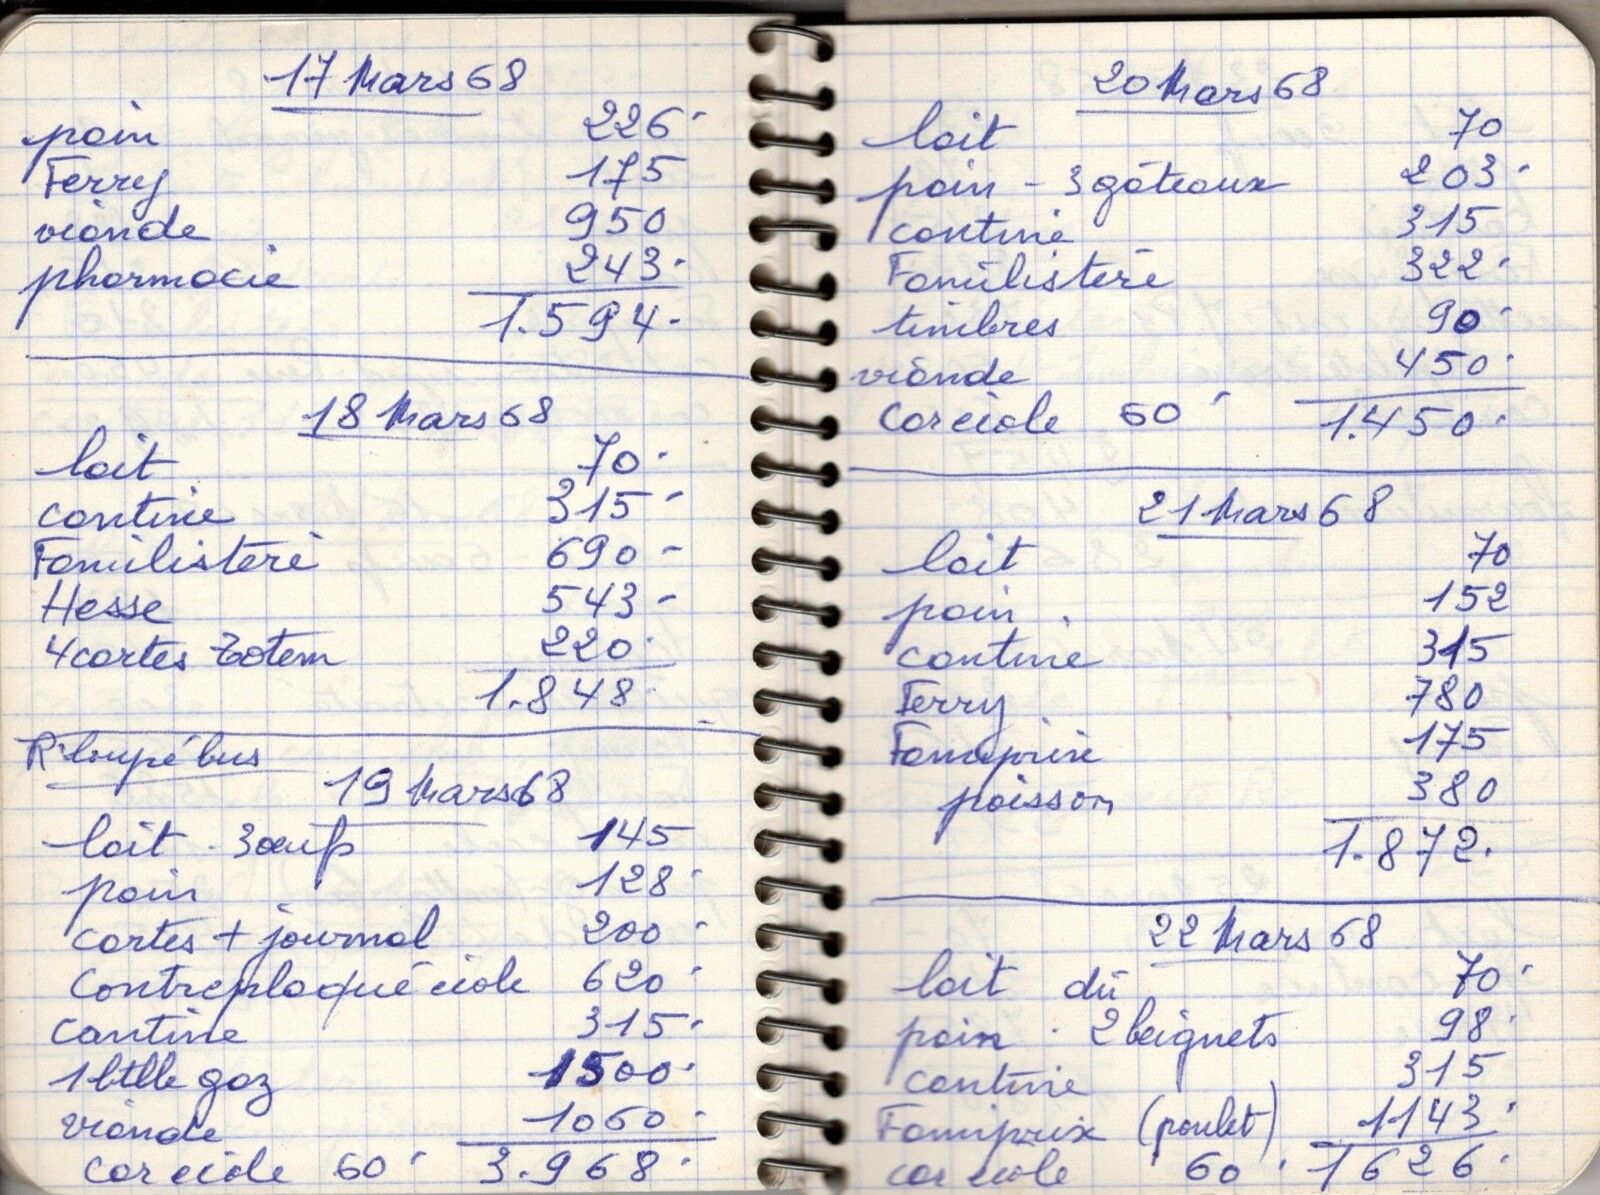 17 Mars 68
pain 226
Ferry 175
viande 950
pharmacie 243.
1.594.
18 Mars 68
lait 70.
cantine 315
Familistère 690
Hesse 543
4 cartes totem 220.
1.848.
R. loupé bus
19 Mars 68
lait . 3 œufs 145
pain 128
cartes + journal 200
Contreplaqué école 620
cantine 315
1 btlle gaz 1500.
viande 1060
car école 60 3.968
20 Mars 68
lait 70
pain - 3 gâteaux 203.
cantine 315
Familistère 322.
timbres 90
viande 450.
Car école 60 1.450.
21 Mars 68
lait 70
pain 152
cantine 315
Ferry 780
Famiprix 175
poisson 380
1.872.
22 Mars 68
lait dû 70
pain . 2 beignets 98.
cantine 315
Famiprix (poulet) 1143
car école 60 . 1626.